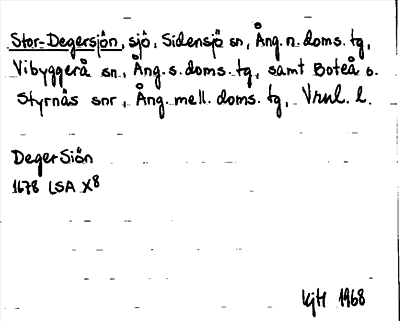 Stor-Degersjön, sjö, Sidensjö sn, Ång. n. doms. tg,
Vibyggerå sn, Ång. s. doms. tg, samt Boteå o.
Styrnäs snr, Ång. mell. doms. tg, Vrnl. l.
Deger Siön
1678 LSA X8
KjH 1968